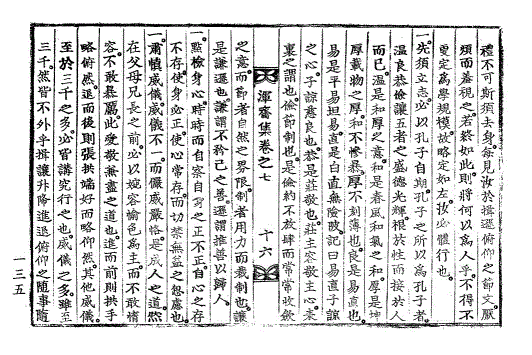 禮不可斯須去身每見汝於揖遜俯仰之節文厭
煩而羞視之若終如此則將何以爲人乎不得不
更定爲學規模故略定如左汝必體行也
一先須立志必以孔子自期孔子之所以爲孔子者
溫良恭儉讓五者之盛德光輝根於性而接於人
而已溫是和厚之意和是春風和氣之和厚是坤
厚載物之厚和不慘暴厚不刻薄也良是易直也
易是平易坦易直是白直無險陂記曰易直子諒
之心子諒慈良也恭是莊敬也莊主容敬主心表
裏之謂也儉節制也是儉約不放肆而常常收斂
渾齋集卷之七 十六
之意而節者自然之界限制者用力而裁制也讓
是謙遜也謙謂不矜己之善遜謂推善以歸人
一點檢身心時時而自察自身之正不正自心之存
不存使身必正使心常存而切禁無益之慮也
一肅愼威儀威儀不一而儼威嚴恪是成人之道然
在父母兄長之前必以婉容愉色爲主而不敢惰
容不敢暴厲此愛敬兼盡之道也進而前則拱手
略俯然退而後則張拱端好而略仰然其他威儀
至於三千之多必皆講究行之也威儀之多雖至
三千然皆不外乎揖讓升降進退俯仰之隨事隨
一三五